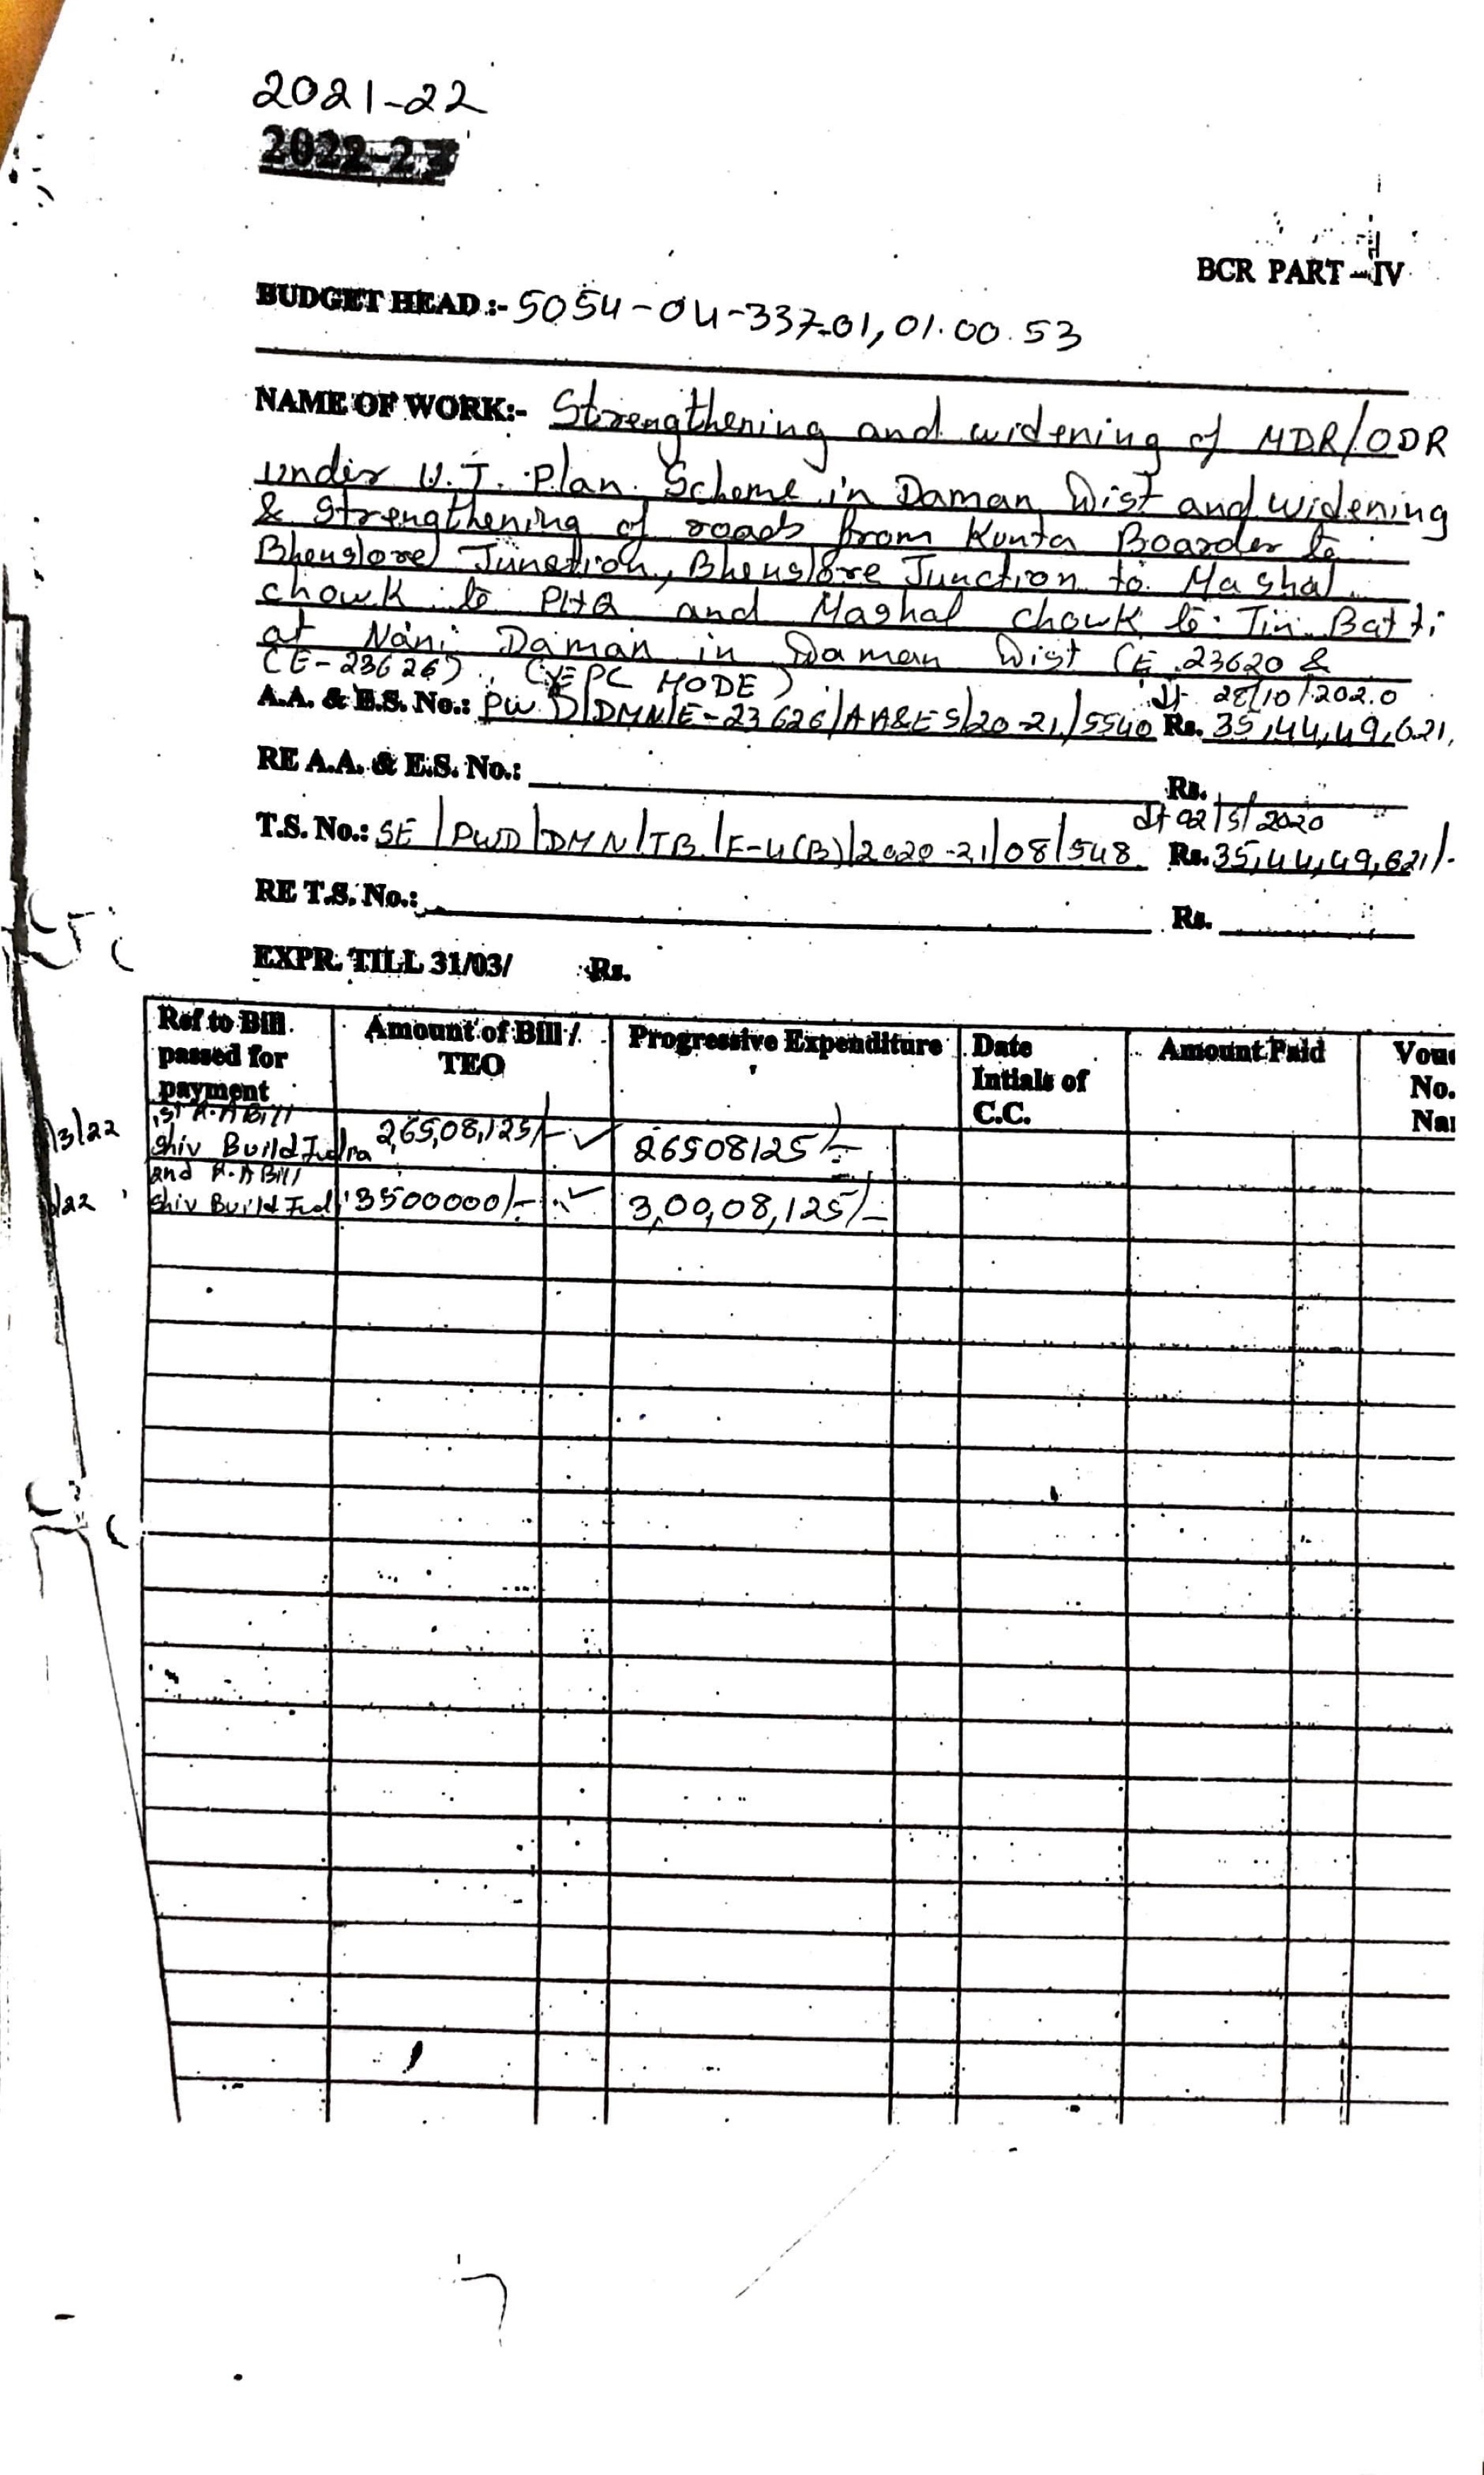 2021-22
2022-23
BCR PART-IV
BUDGET HEAD :- 5054-04-337-01, 01.00.53
NAME OF WORK:- Strengthening and widening of MDR/ODR
under U.T. Plan Scheme in Daman Dist and widening
& Strengthening of roads from Kunta Boarder to
Bhenslore Junction, Bhenslore Junction to Mashal
chowk to PHQ and Mashal chowk to Tin Batti
at Nani Daman in Daman Dist (E.23620 &
(E-23626) (EPC MODE)
Dt 28/10/2020
A.A. & E.S. No.: PWD/DMN/E-23626/AA&ES/20-21/5540 Rs. 35,44,49,621,
RE A.A. & E.S. No.: Rs.
Dt 02/5/2020
T.S. No.: SE/PWD/DMN/TB/F-4(B)/2020-21/08/548 Rs. 35,44,49,621/-
RE T.S. No.: Rs.
EXPR. TILL 31/03/ Rs.
Ref to Bill passed for payment Amount of Bill / TEO Progressive Expenditure Date Intials of C.C. Amount Paid No.
1st R.A Bill
3/22 Shiv Build India 2,65,08,125/- 26508125/-
2nd R.A Bill
/22 Shiv Build Ind 3500000/- 3,00,08,125/-